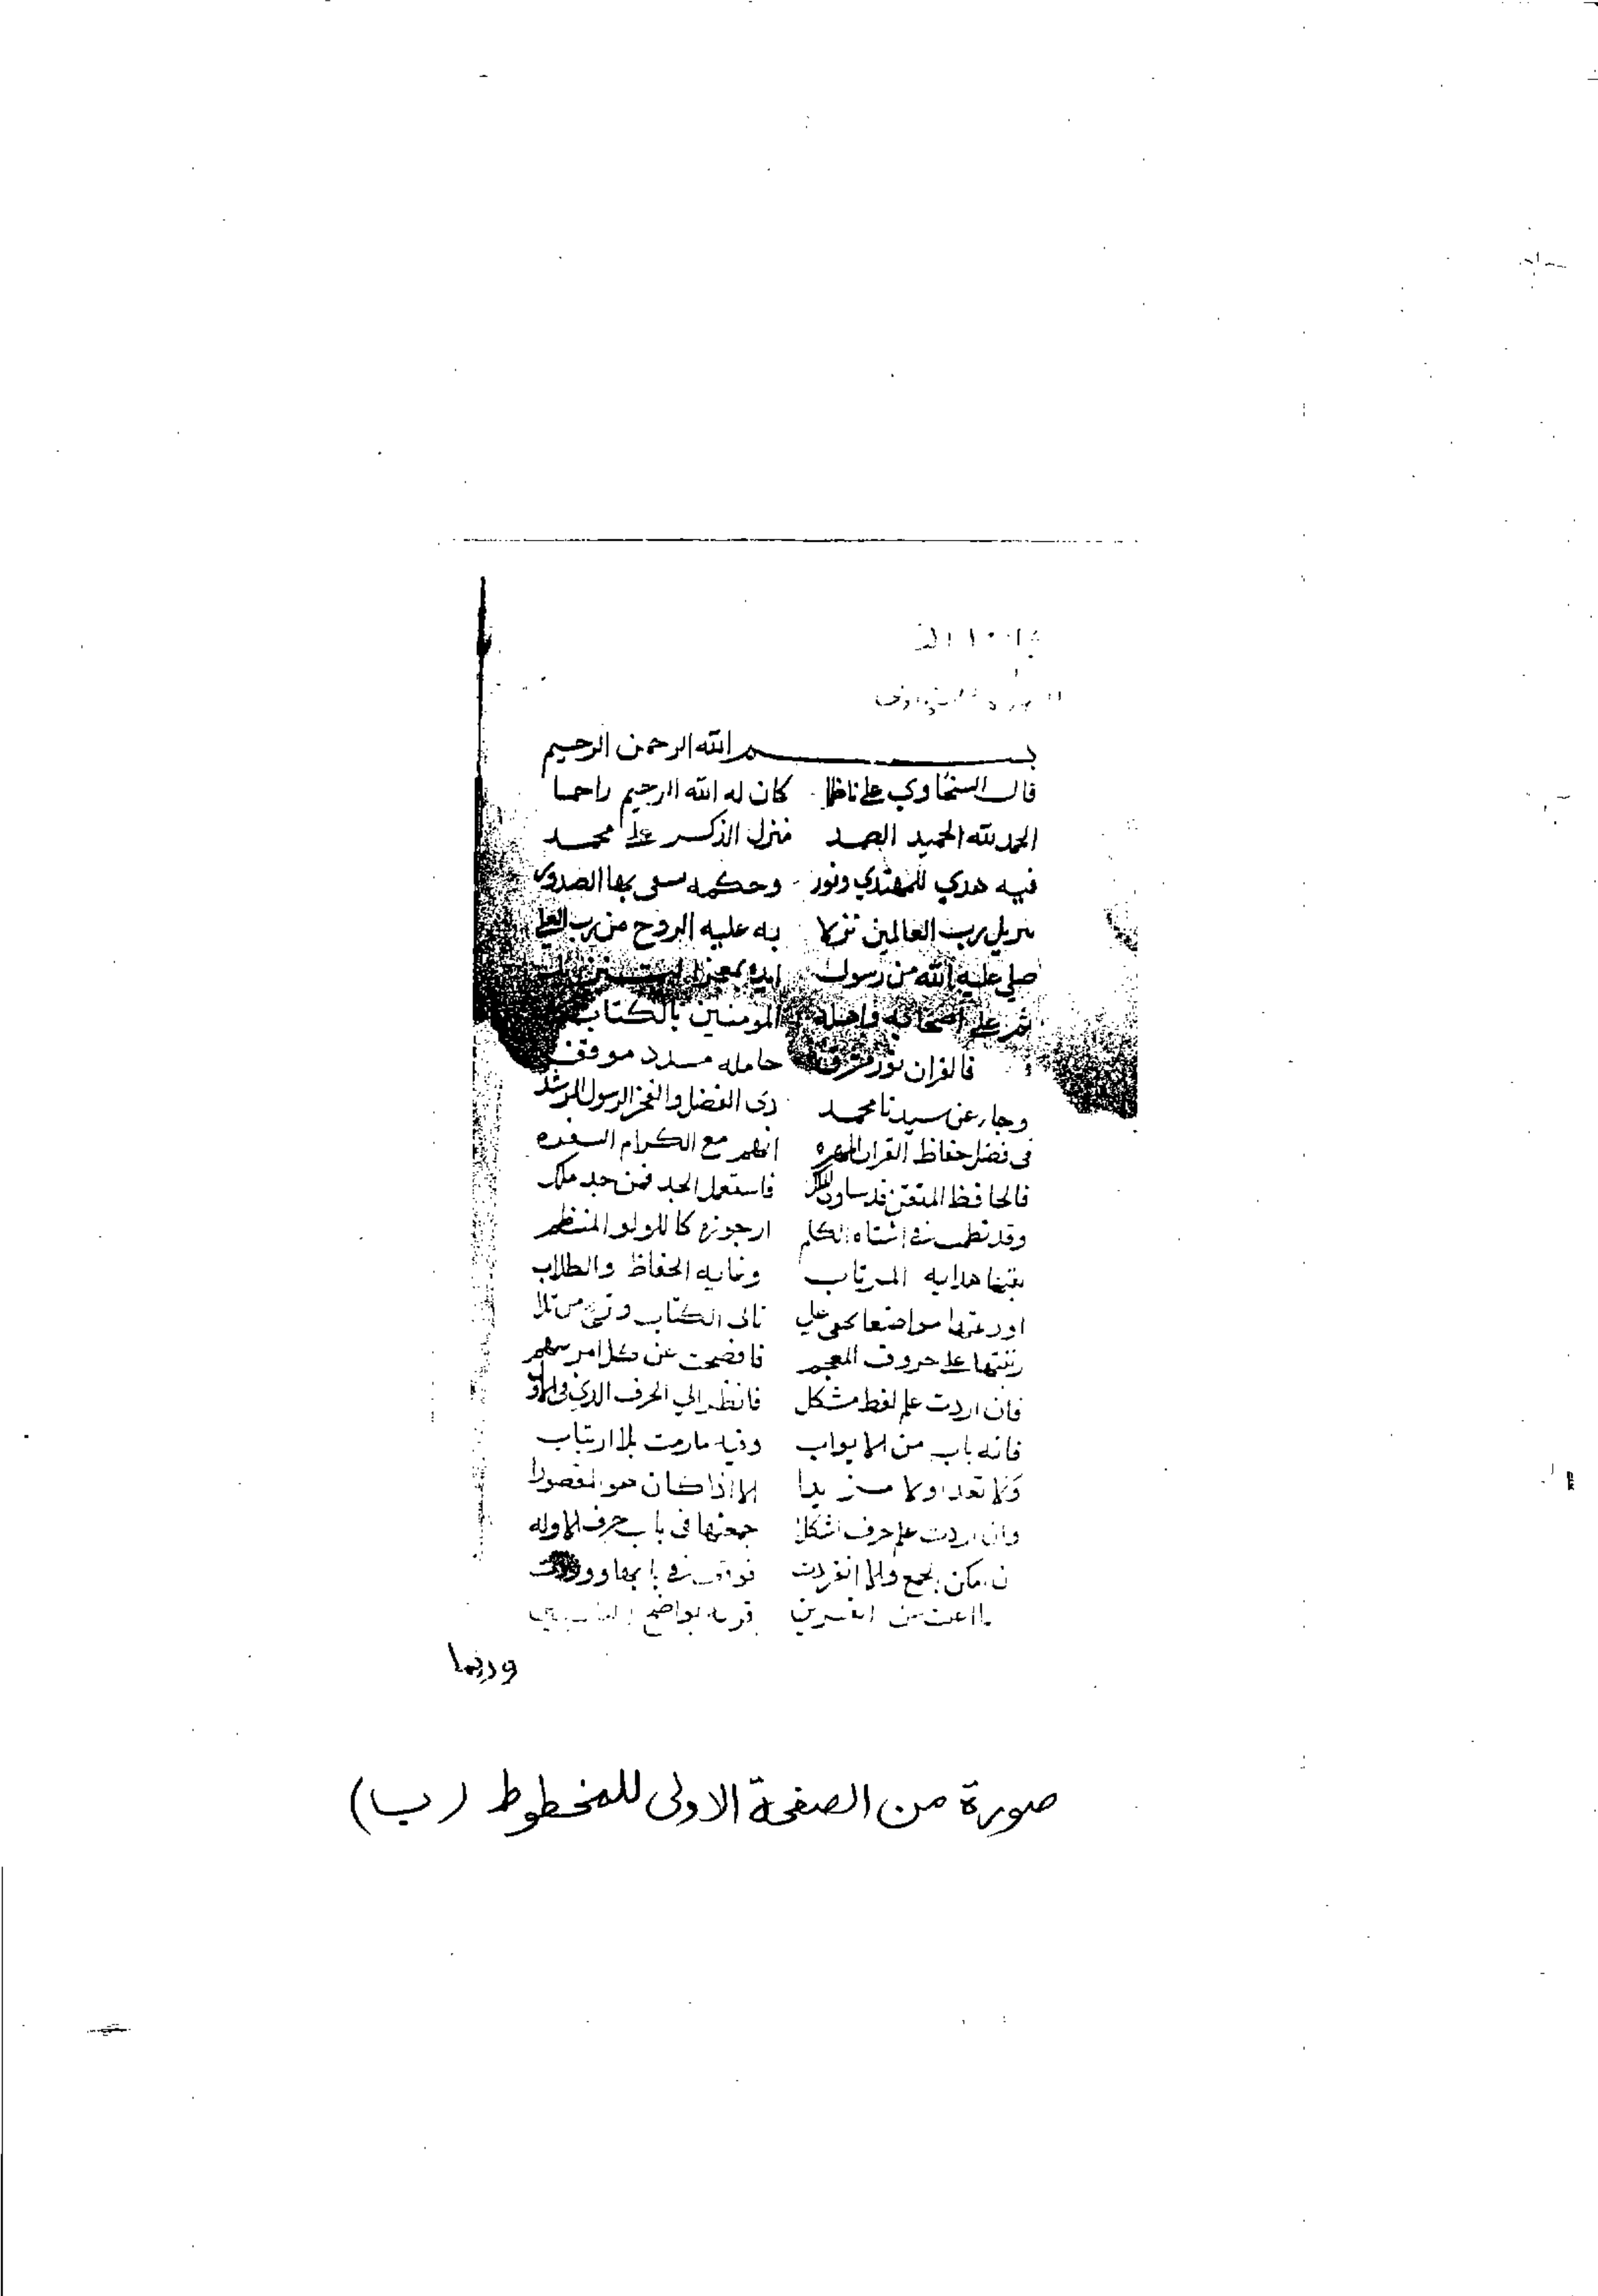 بسم الله الرحمن الرحيم
قال السخاوي علي ناظما كان له الله الرحيم راحما
الحمد لله الحميد الصمد منزل الذكر على محمد
فيه هدي للمهتدي ونور وحكمه تشفى بها الصدور
تنزيل رب العالمين نزلا به عليه الروح من رب العلي
صلي عليه الله من رسول ايده بمعجز التنزيل
ثم على اصحابه واهله المومنين بالكتاب
فالقران نور مشرق حامله مسدد موفق
وجا عن سيدنا محمد ذى الفضل والفخر الرسول المرشد
فى فضل حفاظ القران المهره انهم مع الكرام السفره
فالحافظ المتقن قد ساوى الملك فاستعمل الجد فمن جد ملك
وقد نظمت فى اشتباه الكلم ارجوزه كاللولو المنظم
لقبتها هدايه المرتاب وغايه الحفاظ والطلاب
اودعتها مواضعا تخفى علي تالى الكتاب وتريح من تلا
رتبتها على حروف المعجم فافصحت عن كل امر مبهم
فان اردت علم لفظ مشكل فانظر الي الحرف الذي فى الاول
فانه باب من الابواب وفيه مارمت بلا ارتياب
ولا تعد اولا مزيدا الا اذا كان هو المقصودا
وان اردت علم حرف اشكلا جمعتها فى باب حرف الاوله
ان يمكن الجمع والا انفردت فى بابها ووردت
وربما
صورة من الصفحة الاولى للمخطوط (ب)